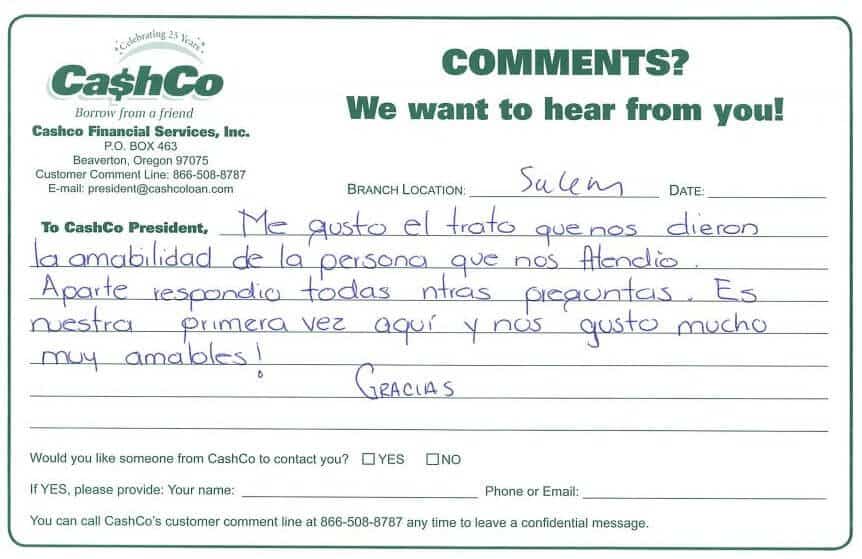 Celebrating 25 Years
Ca$hCo
Borrow from a friend
Cashco Financial Services, Inc.
P.O. BOX 463
Beaverton, Oregon 97075
Customer Comment Line: 866-508-8787
E-mail: president@cashcoloan.com
COMMENTS?
We want to hear from you!
BRANCH LOCATION: Salem DATE:
To CashCo President, Me gusto el trato que nos dieron
la amabilidad de la persona que nos Atendio.
Aparte respondio todas ntras preguntas. Es
nuestra primera vez aquí y nos gusto mucho
muy amables!
GRACIAS
Would you like someone from CashCo to contact you? ☐ YES ☐ NO
If YES, please provide: Your name: Phone or Email:
You can call CashCo's customer comment line at 866-508-8787 any time to leave a confidential message.